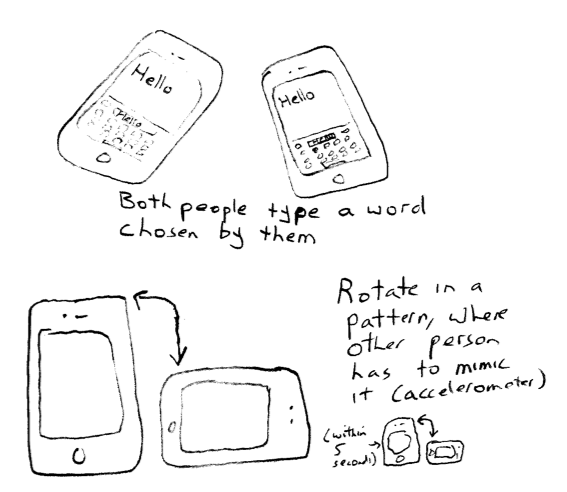 Hello
Hello
Hello
Both people type a word
chosen by them
Rotate in a
pattern, where
other person
has to mimic
it (accelerometer)
(within
5
seconds)